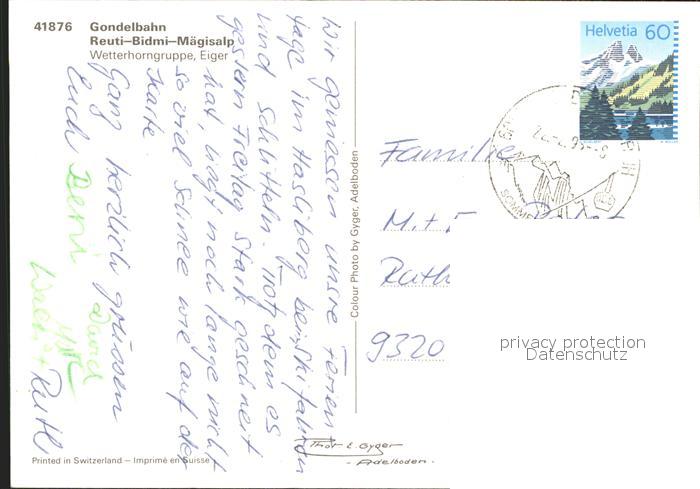 41876 Gondelbahn
Reuti–Bidmi–Mägisalp
Wetterhorngruppe, Eiger
Wir geniessen unsre Ferien
tage im Hasliberg beim Skifahren
und Schlitteln. Trotzdem es
gestern Freitag stark geschneit
hat, liegt noch lange nicht
so viel Schnee wie auf der
Karte.
Ganz herzlich grüssen
Euch Reni David
Ruth
Colour Photo by Gyger, Adelboden
Helvetia 60
Familie
M. +
Ruth
9320
privacy protection
Datenschutz
Printed in Switzerland – Imprimé en Suisse
Gyger
- Adelboden -